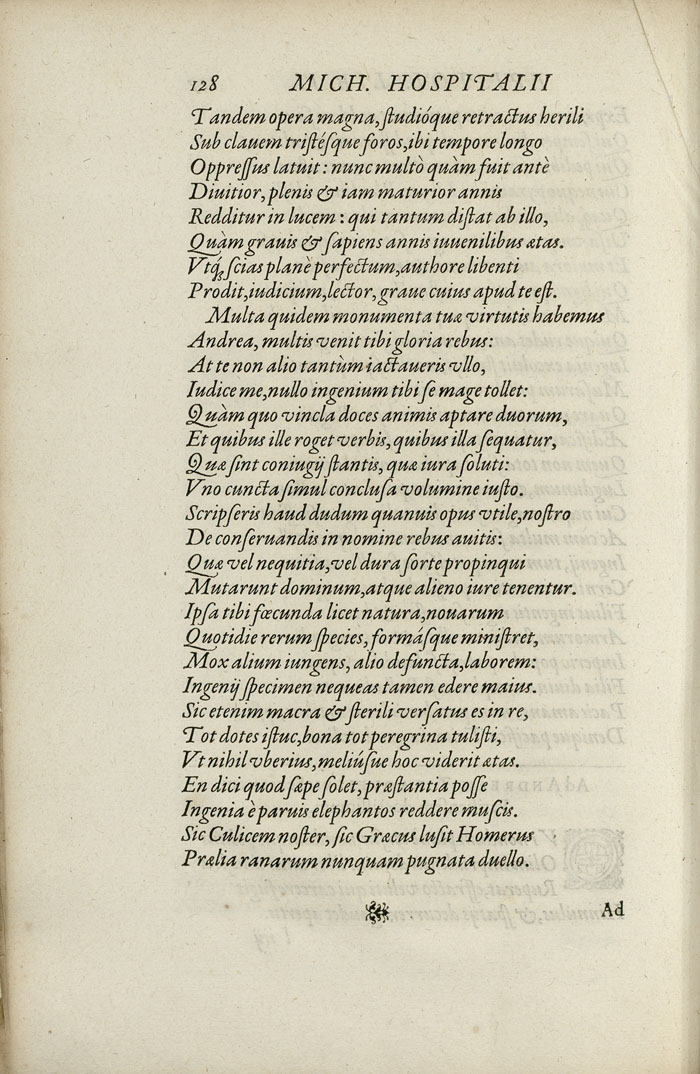 128 MICH. HOSPITALII
Tandem opera magna, studióque retractus herili
Sub clauem tristésque foros, ibi tempore longo
Oppressus latuit: nunc multò quàm fuit antè
Diuitior, plenis & iam maturior annis
Redditur in lucem: qui tantum distat ab illo,
Quàm grauis & sapiens annis iuuenilibus ætas.
Vtq́; scias planè perfectum, authore libenti
Prodit, iudicium, lector, graue cuius apud te est.
Multa quidem monumenta tuæ virtutis habemus
Andrea, multis venit tibi gloria rebus:
At te non alio tantùm iactaueris vllo,
Iudice me, nullo ingenium tibi se mage tollet:
Quàm quo vincla doces animis aptare duorum,
Et quibus ille roget verbis, quibus illa sequatur,
Quæ sint coniugij stantis, quæ iura soluti:
Vno cuncta simul conclusa volumine iusto.
Scripseris haud dudum quanuis opus vtile, nostro
De conseruandis in nomine rebus auitis:
Quæ vel nequitia, vel dura sorte propinqui
Mutarunt dominum, atque alieno iure tenentur.
Ipsa tibi fœcunda licet natura, nouarum
Quotidie rerum species, formásque ministret,
Mox alium iungens, alio defuncta, laborem:
Ingenij specimen nequeas tamen edere maius.
Sic etenim macra & sterili versatus es in re,
Tot dotes istuc, bona tot peregrina tulisti,
Vt nihil vberius, meliúsue hoc viderit ætas.
En dici quod sæpe solet, præstantia posse
Ingenia è paruis elephantos reddere muscis.
Sic Culicem noster, sic Græcus lusit Homerus
Prælia ranarum nunquam pugnata duello.
Ad